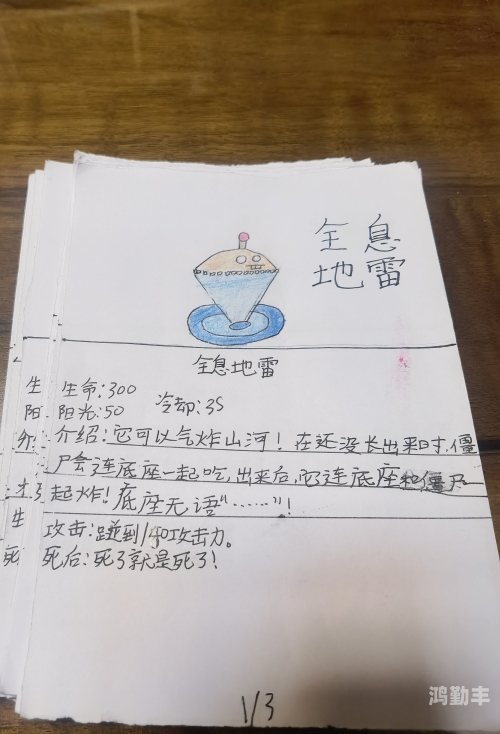 全息
地雷
全息地雷
生命:300
阳光:50 冷却:3S
介绍:它可以气炸山河!在还没长出来时,僵
尸会连底座一起吃,出来后,它连底座和僵尸
起炸!底座无语“……”!
攻击:碰到140攻击力。
死后:死了就是死了!
生
阳
介
才
生
死
1/3
鸿勤丰